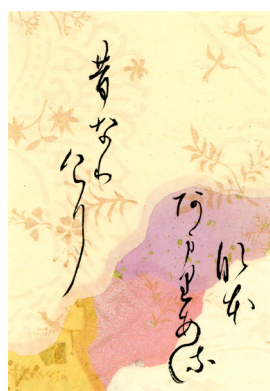 なほ
あまりある
昔なり
けり